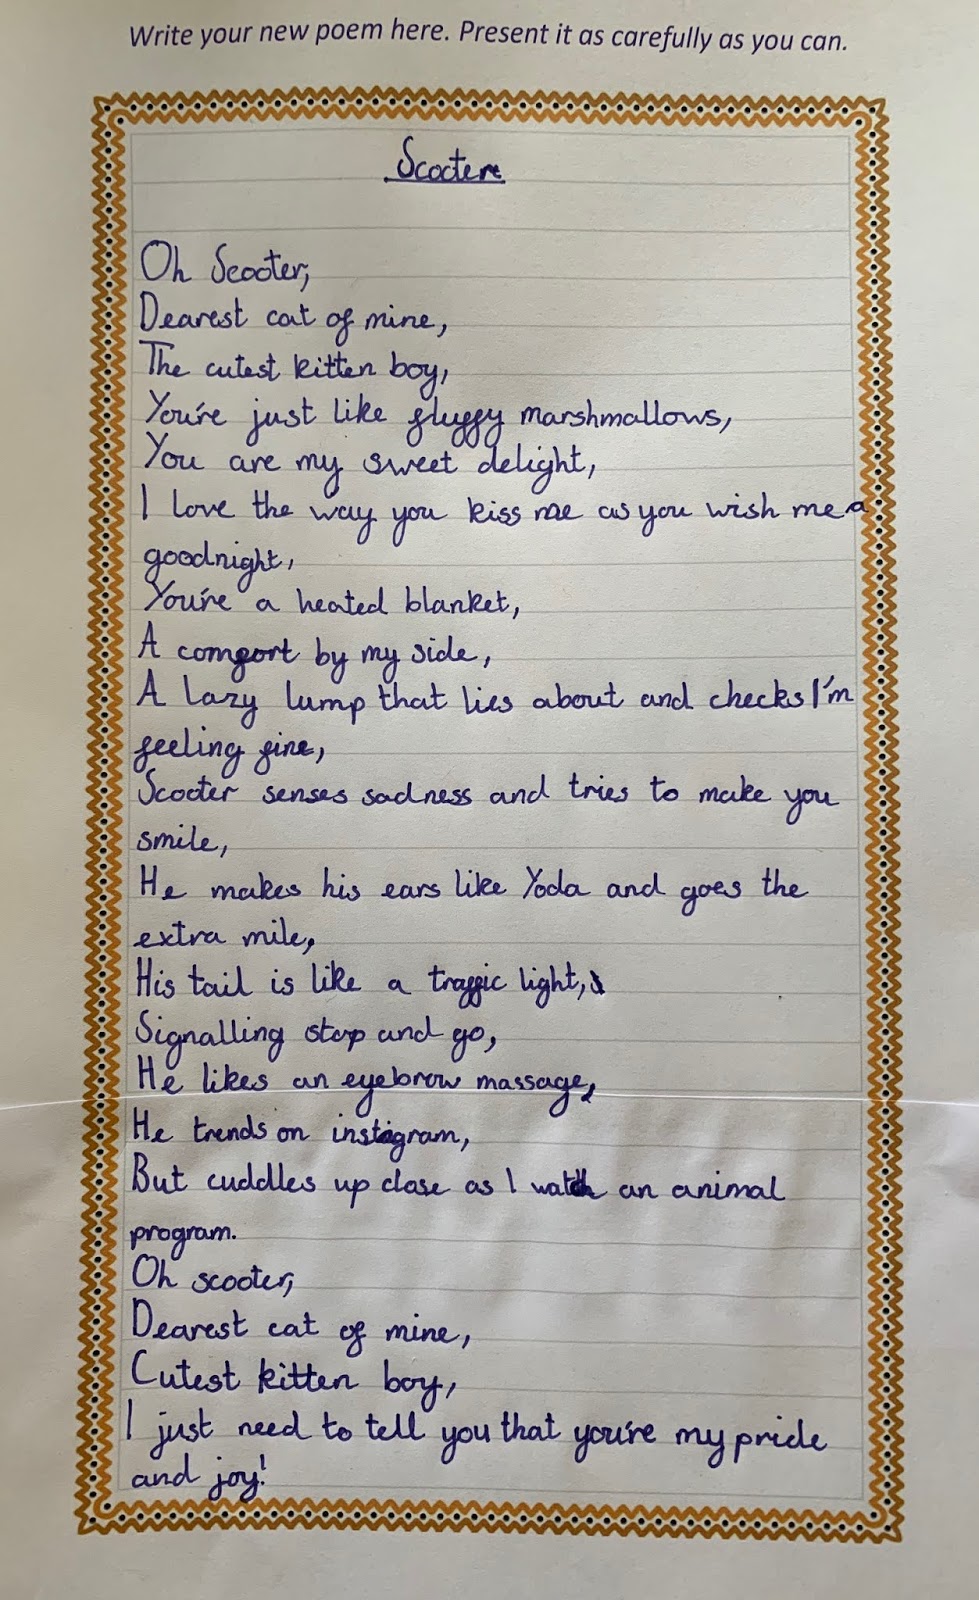 Write your new poem here. Present it as carefully as you can.
Scooter
Oh Scooter,
Dearest cat of mine,
The cutest kitten boy,
You're just like fluffy marshmallows,
You are my sweet delight,
I love the way you kiss me as you wish me a
goodnight,
You're a heated blanket,
A comfort by my side,
A lazy lump that lies about and checks I'm
feeling fine,
Scooter senses sadness and tries to make you
smile,
He makes his ears like Yoda and goes the
extra mile,
His tail is like a traffic light,
Signalling stop and go,
He likes an eyebrow massage,
He trends on instagram,
But cuddles up close as I watch an animal
program.
Oh scooter,
Dearest cat of mine,
Cutest kitten boy,
I just need to tell you that you're my pride
and joy!